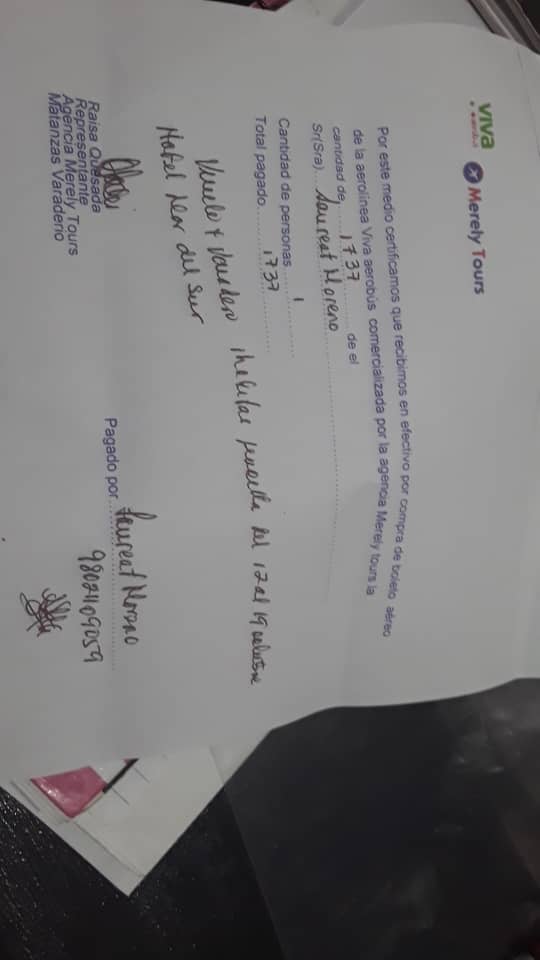 viva
Merely Tours
Por este medio certificamos que recibimos en efectivo por compra de boleto aéreo
de la aerolínea Viva aerobús comercializada por la agencia Merely tours la
cantidad de 1737 de el
Sr(Sra) Laureat Moreno
Cantidad de personas 1
Total pagado 1737
Vuelo + Varadero del 12 al 19 octubre
Hotel Mar del Sur
Raisa Quesada
Representante
Agencia Merely Tours
Matanzas Varadero
Pagado por Laureat Moreno
9802409059